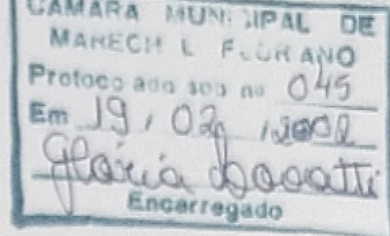 CAMARA MUNICIPAL DE
MARECHAL FLORIANO
Protocolado sob no 045
Em 19, 02,
Glória
Encarregado